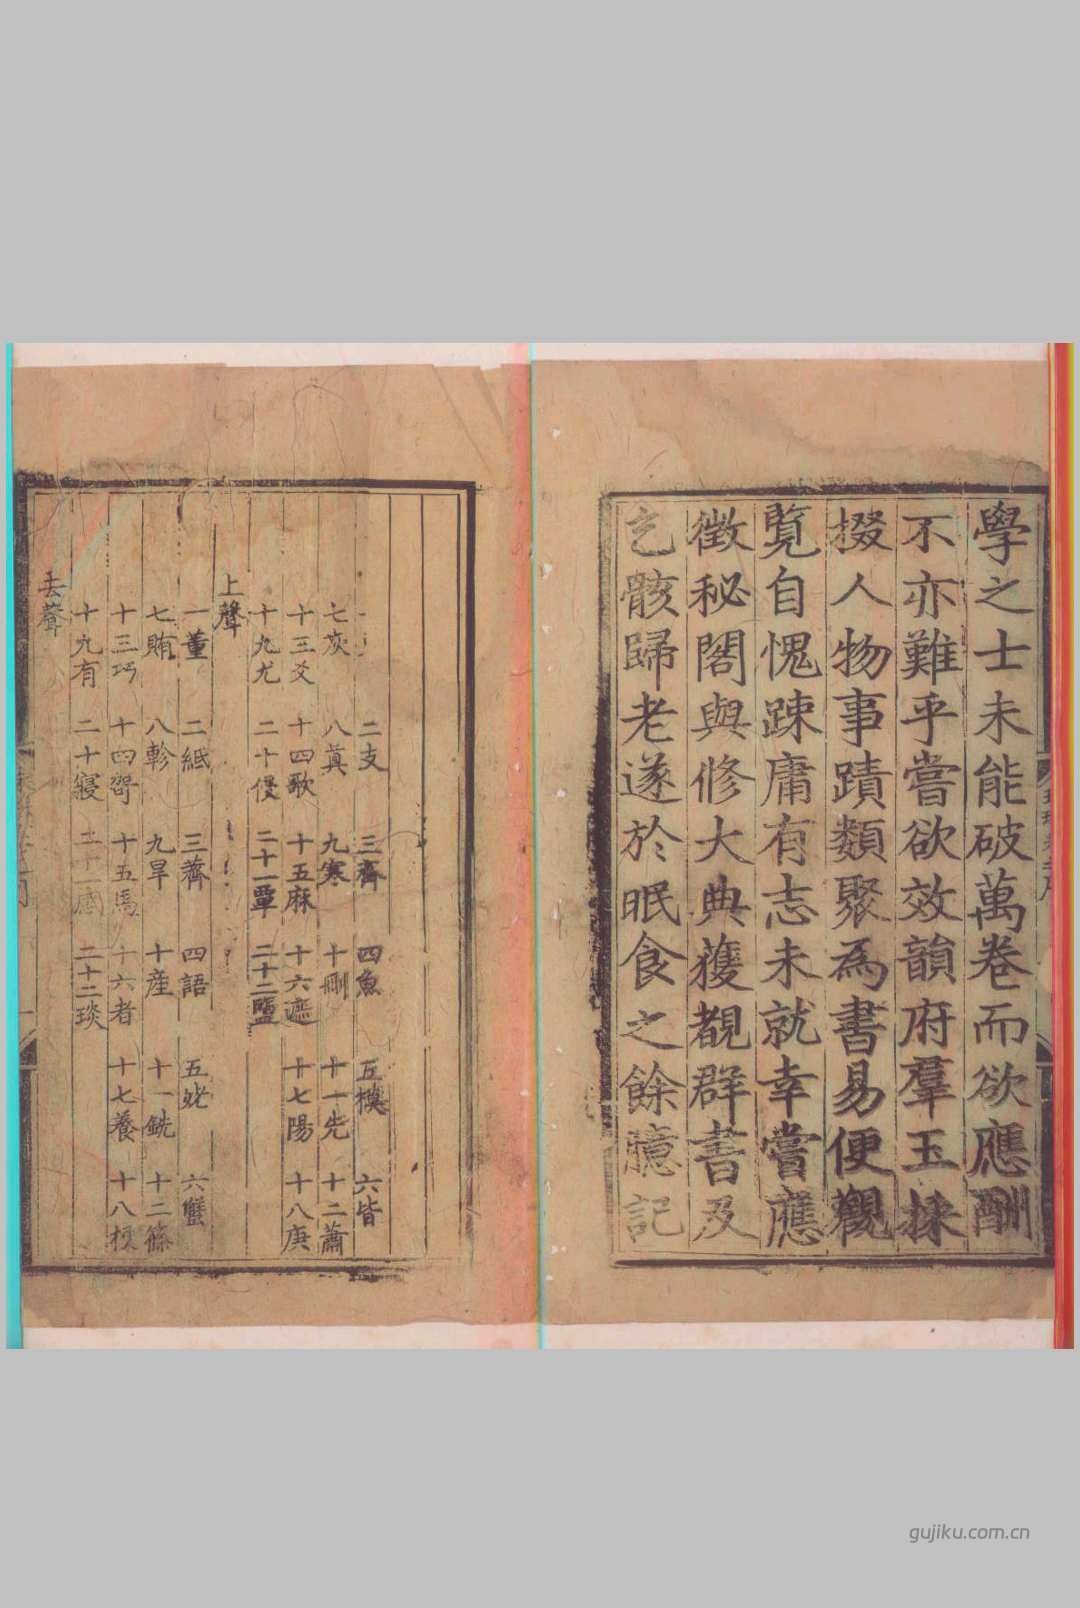 學之士未能破萬卷而欲應酬
不亦難乎嘗欲效韻府羣玉採
掇人物事蹟類聚為書易便觀
覽自愧踈庸有志未就幸嘗應
徵秘閣與修大典獲覩群書及
乞骸歸老遂於眠食之餘臆記
二支 三齊 四魚 五模 六皆
七灰 八真 九寒 十刪 十一先 十二蕭
十三爻 十四歌 十五麻 十六遮 十七陽 十八庚
十九尤 二十侵 二十一覃 二十二鹽
上聲
一董 二紙 三薺 四語 五姥 六蟹
七賄 八軫 九旱 十産 十一銑 十二篠
十三巧 十四哿 十五馬 十六者 十七養 十八梗
十九有 二十寑 二十一感 二十二琰
去聲
gujiku.com.cn